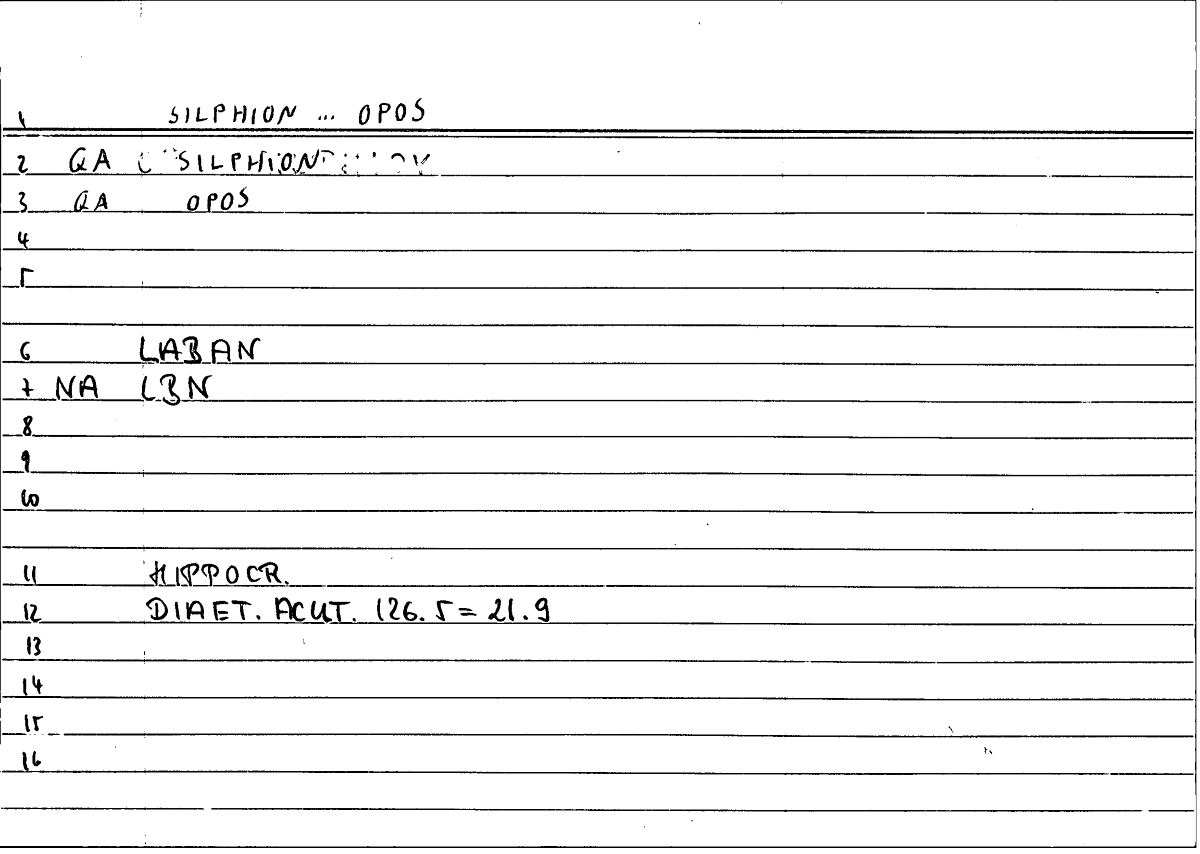 1 SILPHION ... OPOS
2 QA SILPHION
3 QA OPOS
4
5
6 LABAN
7 NA LBN
8
9
10
11 HIPPOCR.
12 DIAET. ACUT. 126.5 = 21.9
13
14
15
16